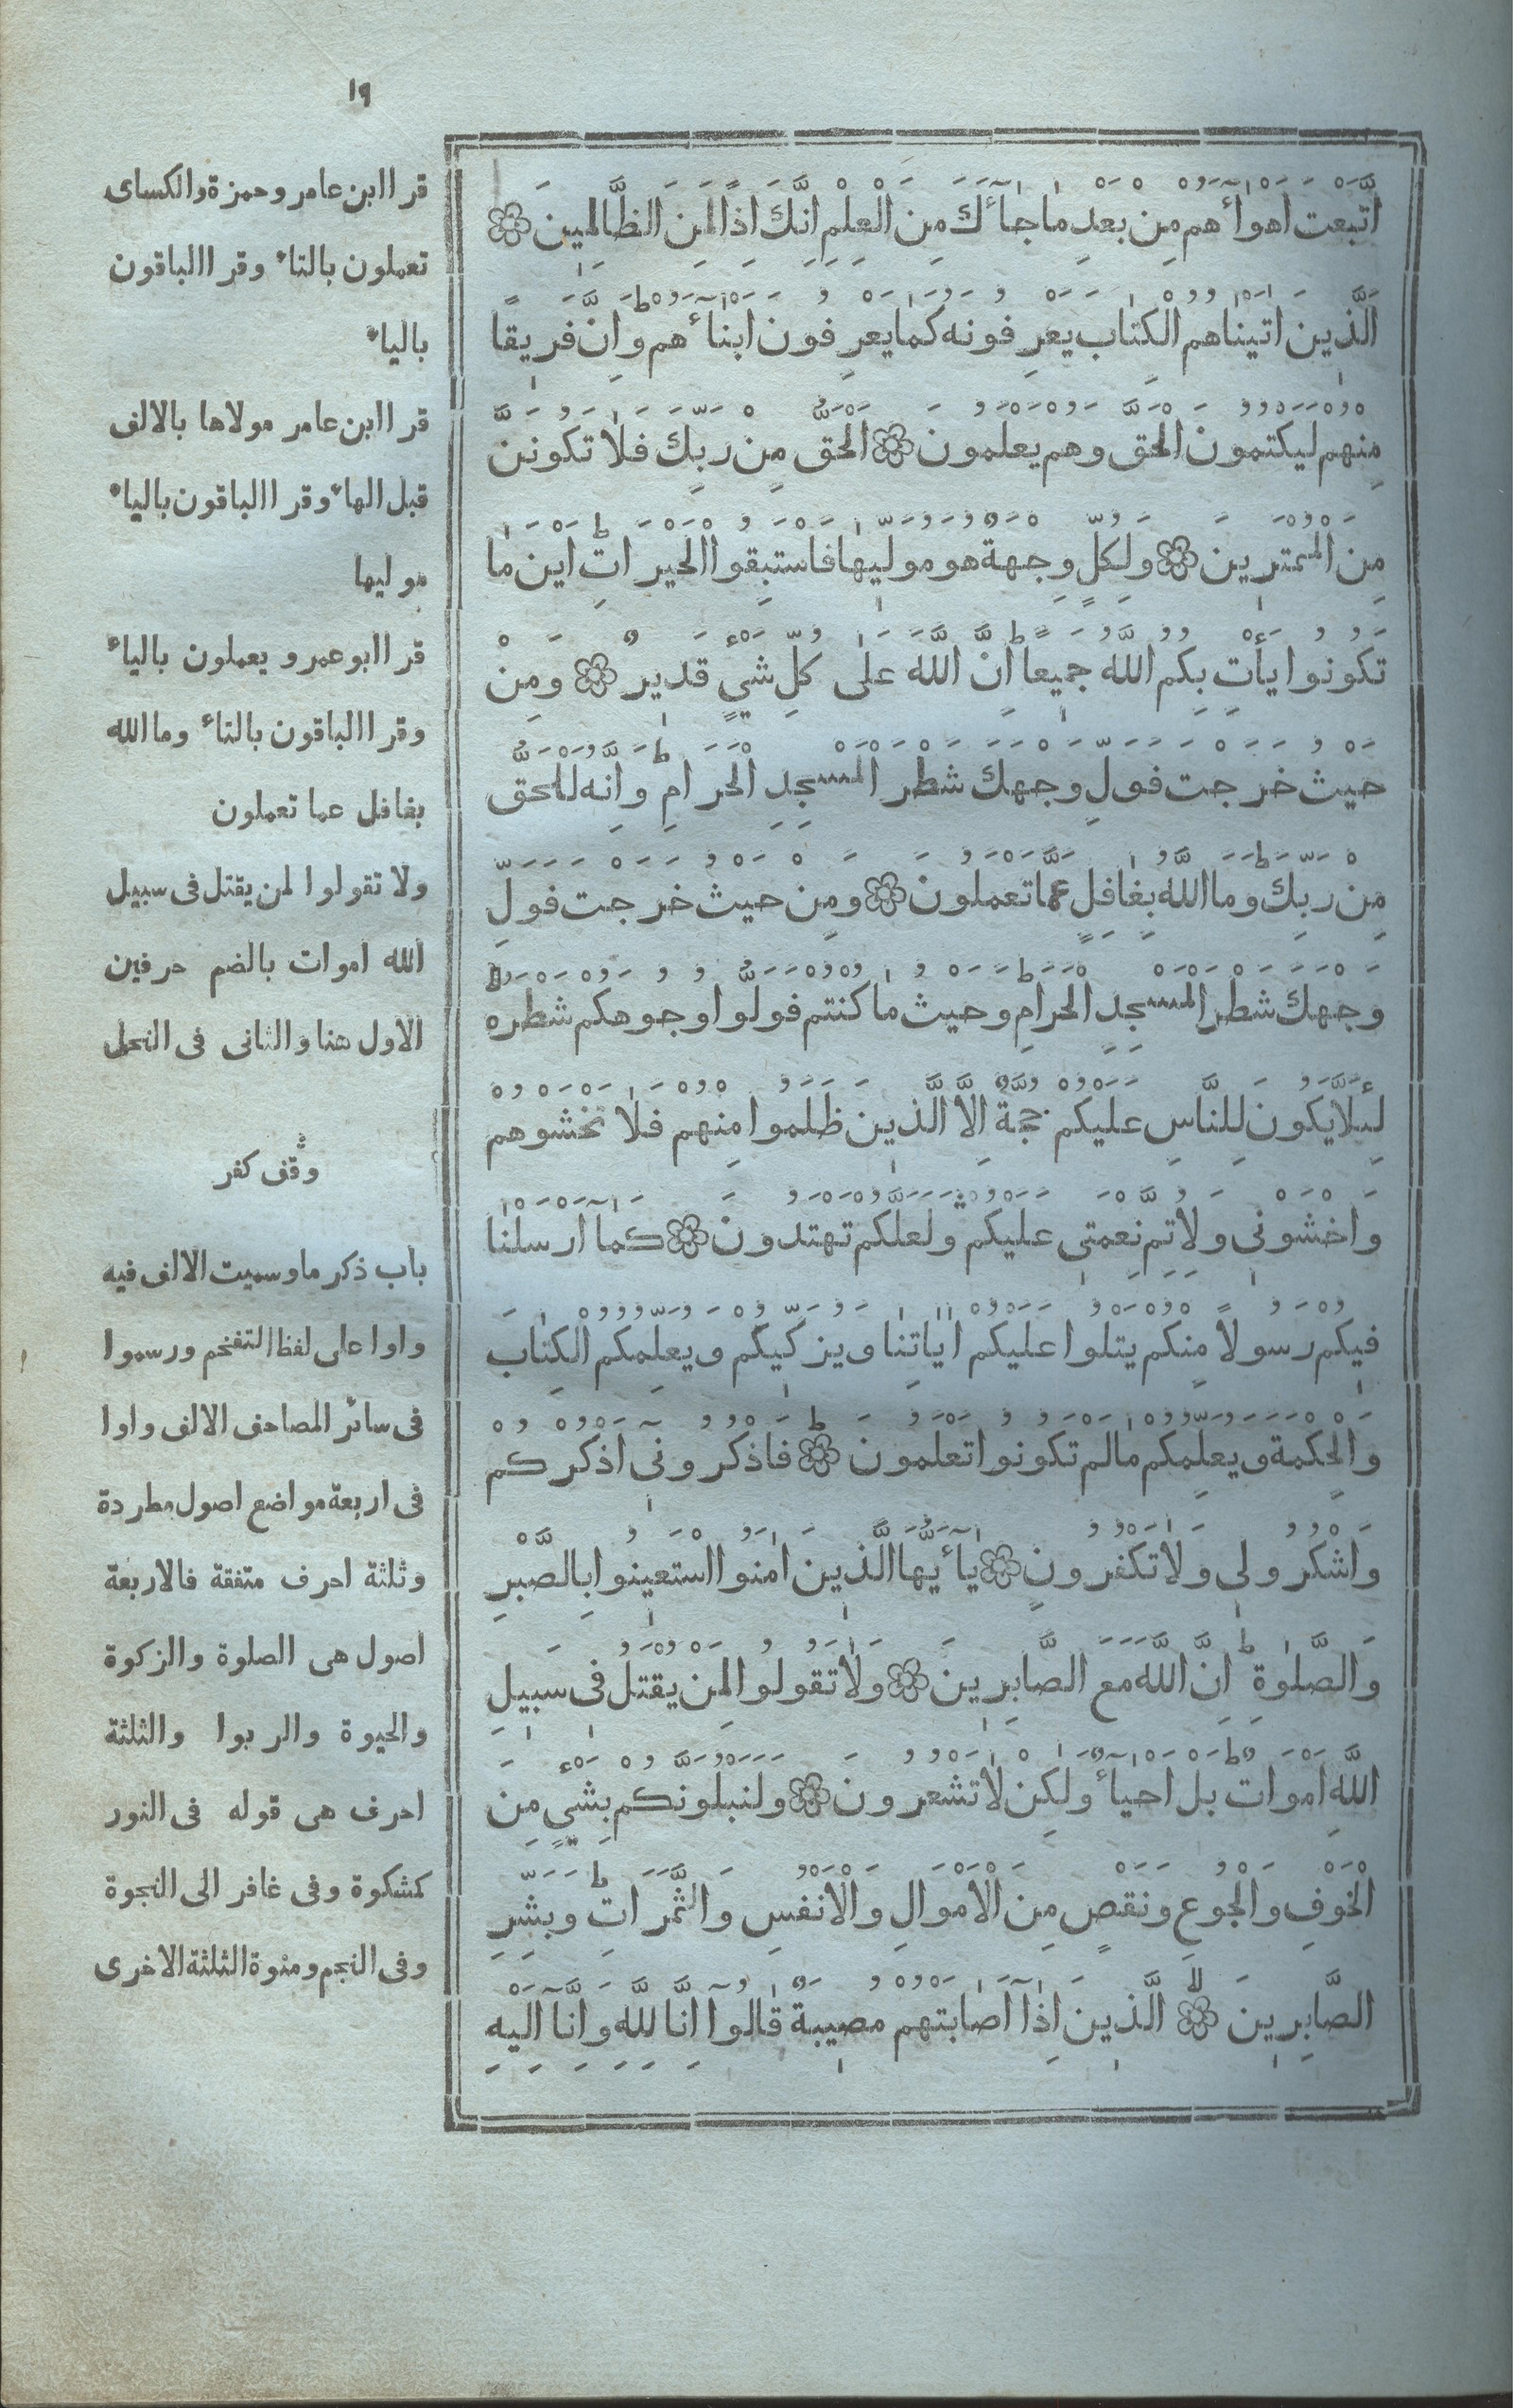 ١٩
اتَّبَعْتَ اَهْوَآءَهُمْ مِنْ بَعْدِ مَا جَآءَكَ مِنَ الْعِلْمِ اِنَّكَ اِذًا لَمِنَ الظَّالِمِينَ
اَلَّذِينَ اٰتَيْنَاهُمُ الْكِتَابَ يَعْرِفُونَهُ كَمَا يَعْرِفُونَ اَبْنَآءَهُمْ وَاِنَّ فَرِيقًا
مِنْهُمْ لَيَكْتُمُونَ الْحَقَّ وَهُمْ يَعْلَمُونَ اَلْحَقُّ مِنْ رَبِّكَ فَلَا تَكُونَنَّ
مِنَ الْمُمْتَرِينَ وَلِكُلٍّ وِجْهَةٌ هُوَ مُوَلِّيهَا فَاسْتَبِقُوا الْخَيْرَاتِ اَيْنَ مَا
تَكُونُوا يَأْتِ بِكُمُ اللهُ جَمِيعًا اِنَّ اللهَ عَلَى كُلِّ شَيْءٍ قَدِيرٌ وَمِنْ
حَيْثُ خَرَجْتَ فَوَلِّ وَجْهَكَ شَطْرَ الْمَسْجِدِ الْحَرَامِ وَاِنَّهُ لَلْحَقُّ
مِنْ رَبِّكَ وَمَا اللهُ بِغَافِلٍ عَمَّا تَعْمَلُونَ وَمِنْ حَيْثُ خَرَجْتَ فَوَلِّ
وَجْهَكَ شَطْرَ الْمَسْجِدِ الْحَرَامِ وَحَيْثُ مَا كُنْتُمْ فَوَلُّوا وُجُوهَكُمْ شَطْرَهُ
لِئَلَّا يَكُونَ لِلنَّاسِ عَلَيْكُمْ حُجَّةٌ اِلَّا الَّذِينَ ظَلَمُوا مِنْهُمْ فَلَا تَخْشَوْهُمْ
وَاخْشَوْنِي وَلِاُتِمَّ نِعْمَتِي عَلَيْكُمْ وَلَعَلَّكُمْ تَهْتَدُونَ كَمَآ اَرْسَلْنَا
فِيكُمْ رَسُولًا مِنْكُمْ يَتْلُوا عَلَيْكُمْ اٰيَاتِنَا وَيُزَكِّيكُمْ وَيُعَلِّمُكُمُ الْكِتَابَ
وَالْحِكْمَةَ وَيُعَلِّمُكُمْ مَا لَمْ تَكُونُوا تَعْلَمُونَ فَاذْكُرُونِي اَذْكُرْكُمْ
وَاشْكُرُوا لِي وَلَا تَكْفُرُونِ يَآ اَيُّهَا الَّذِينَ اٰمَنُوا اسْتَعِينُوا بِالصَّبْرِ
وَالصَّلٰوةِ اِنَّ اللهَ مَعَ الصَّابِرِينَ وَلَا تَقُولُوا لِمَنْ يُقْتَلُ فِي سَبِيلِ
اللهِ اَمْوَاتٌ بَلْ اَحْيَآءٌ وَلٰكِنْ لَا تَشْعُرُونَ وَلَنَبْلُوَنَّكُمْ بِشَيْءٍ مِنَ
الْخَوْفِ وَالْجُوعِ وَنَقْصٍ مِنَ الْاَمْوَالِ وَالْاَنْفُسِ وَالثَّمَرَاتِ وَبَشِّرِ
الصَّابِرِينَ الَّذِينَ اِذَا اَصَابَتْهُمْ مُصِيبَةٌ قَالُوآ اِنَّا لِلّٰهِ وَاِنَّآ اِلَيْهِ
قرا ابن عامر وحمزة والكساى
تعملون بالتاء وقرا الباقون
بالياء
قرا ابن عامر مولاها بالالف
قبل الهاء وقرا الباقون بالياء
موليها
قرا ابو عمرو يعملون بالياء
وقرا الباقون بالتاء وما الله
بغافل عما تعملون
ولا تقولوا لمن يقتل فى سبيل
الله اموات بالضم حرفين
الاول هنا والثانى فى النحل
وقف كفر
باب ذكر ما وسميت الالف فيه
واوا على لفظ التفخم ورسموا
فى سائر المصاحف الالف واوا
فى اربعة مواضع اصول مطردة
وثلثة احرف متفقة فالاربعة
اصول هى الصلوة والزكوة
والحيوة والربوا والثلثة
احرف هى قوله فى النور
كمشكوة وفى غافر الى النجوة
وفى النجم ومنوة الثلثة الاخرى